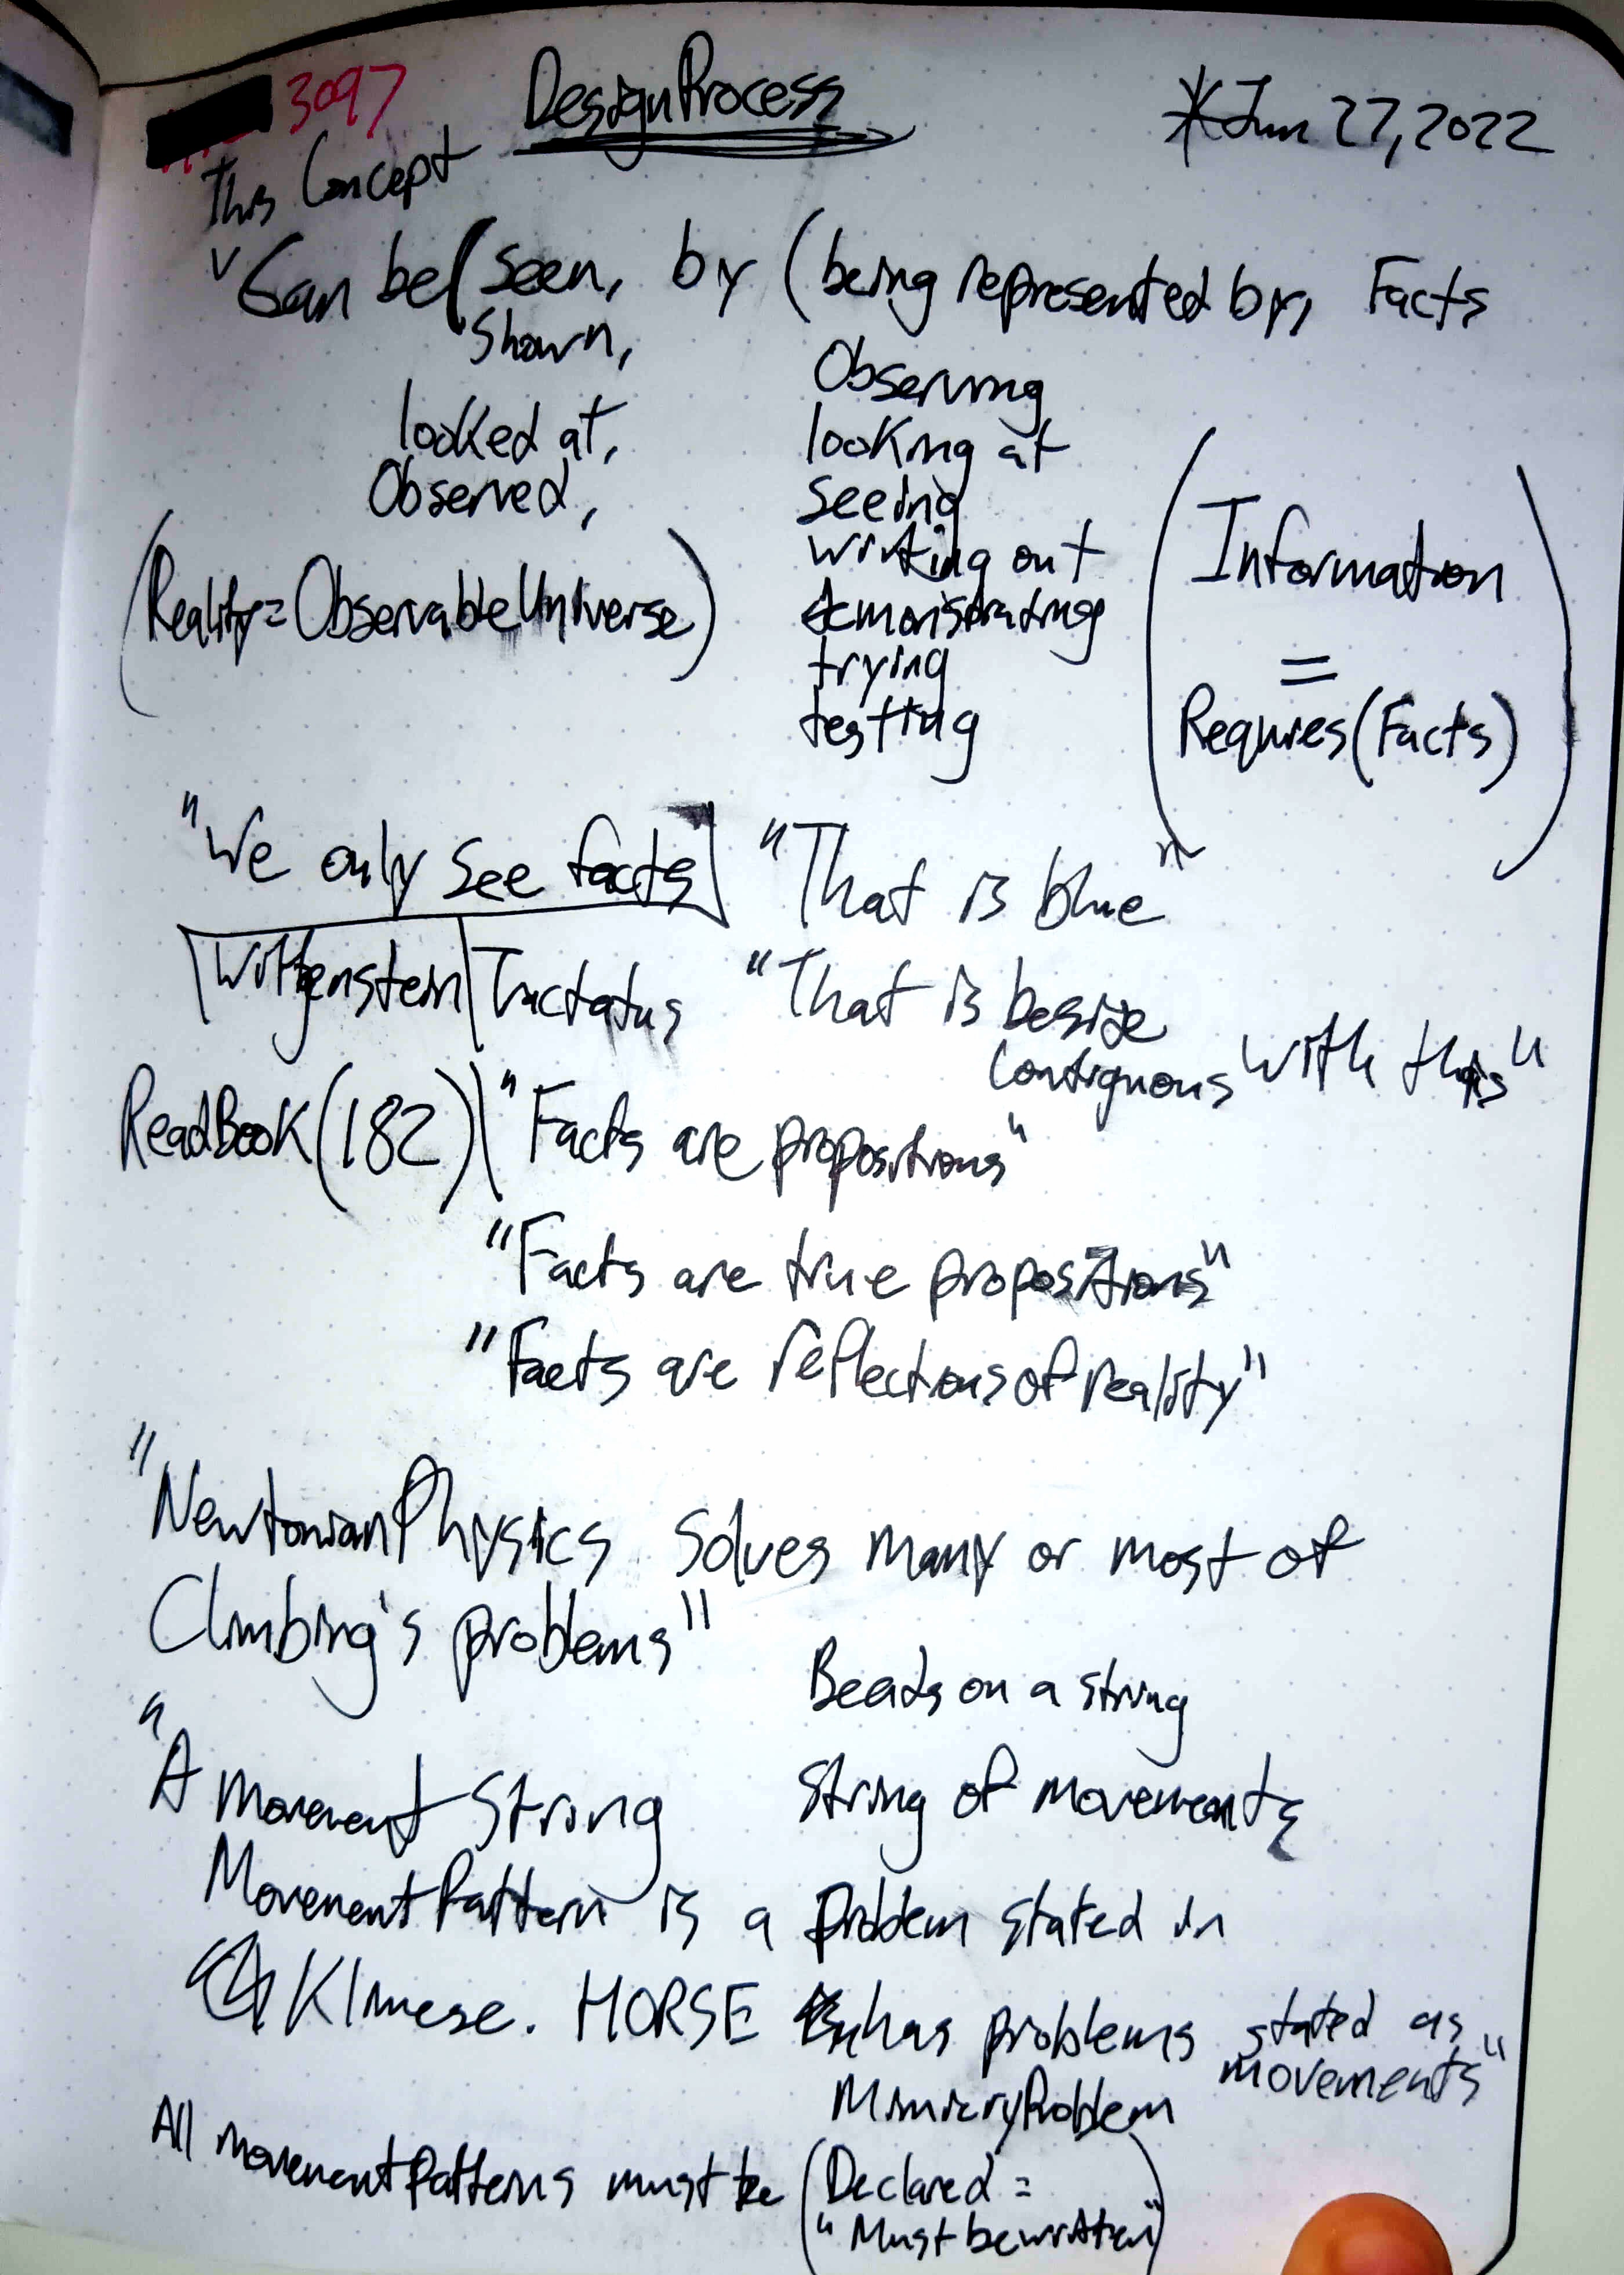 3097 DesignProcess *Jun 27, 2022
This Concept
Can be (seen, by (being represented by, Facts
Shown,
Observing
looked at,
looking at
Observed,
seeing
working out
(Reality = ObservableUniverse)
demonstrating
trying
testing
(Information
=
Requires (Facts))
"We only see facts
"That is blue"
Wittgenstein | Tractatus
"That is beside
contiguous with this"
ReadBook(182) "Facts are propositions"
"Facts are true propositions"
"Facts are reflections of reality"
"NewtonianPhysics solves many or most of
Climbing's problems"
Beads on a string
"A movement string
string of movements
MovementPattern is a problem stated in
Klimese. HORSE has problems stated as
movements"
MimicryProblem
All movementPatterns must be (Declared =
"Must be written")